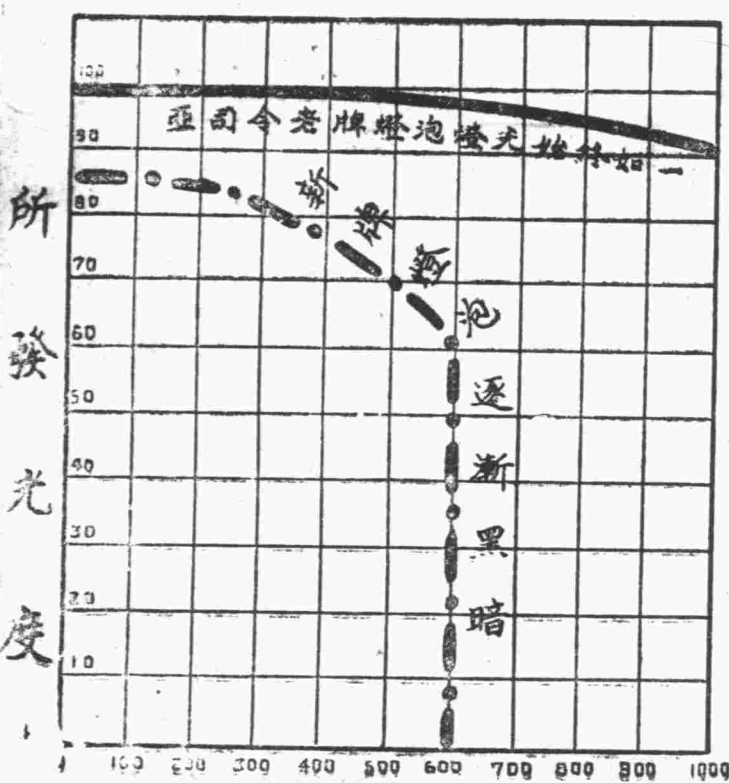 100
90
80
70
60
50
40
30
20
10
亞司令老牌燈泡燈光始終如一
新牌燈泡逐漸黑暗
所發光度
1 100 200 300 400 500 600 700 800 900 1000